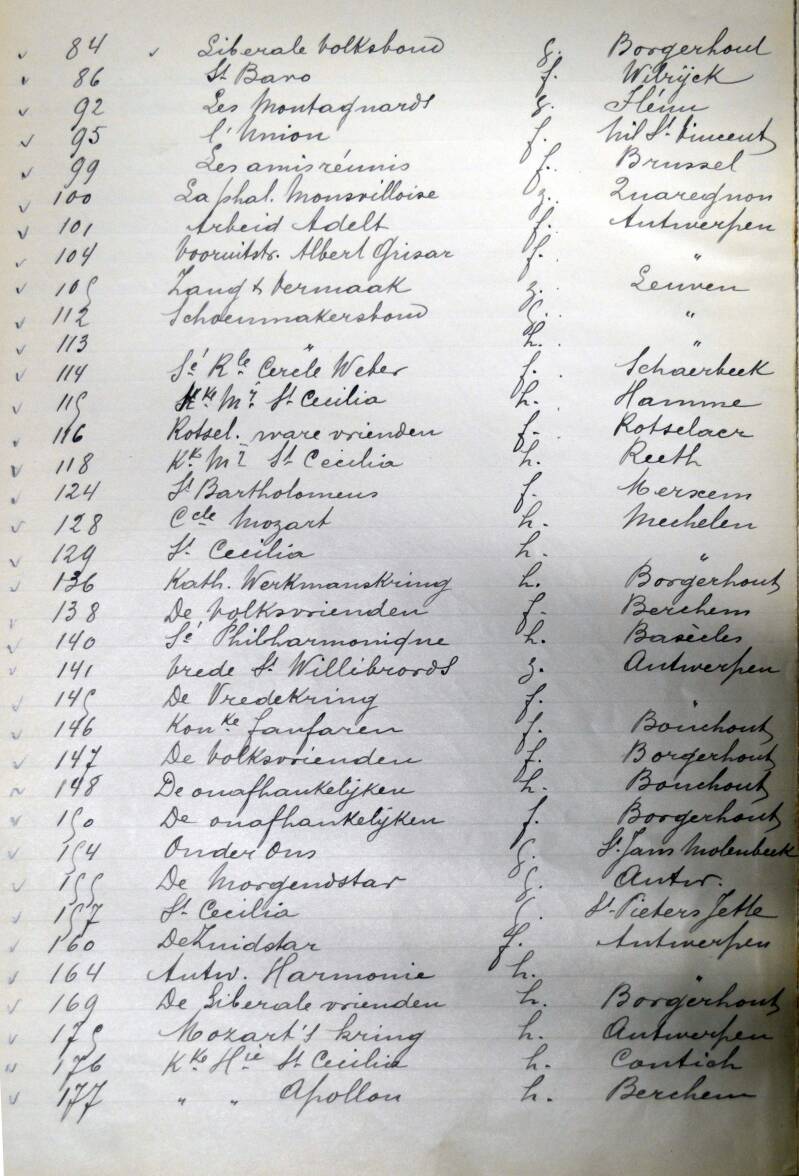 ✓ 84 ✓ Liberale Volksbond g. Borgerhout
✓ 86 St Bavo f. Wilrijck
✓ 92 Les Montagnards g. Flénu
✓ 95 l'Union f. Nil St Vincent
✓ 99 Les amis réunis f. Brussel
✓ 100 La phal. Monsvilloise z. Quaregnon
✓ 101 Arbeid Adelt f. Antwerpen
✓ 104 Vooruitstr. Albert Grisar f. "
✓ 105 Zang & Vermaak z. Leuven
✓ 112 Schoenmakersbond f. "
✓ 113 " h. "
✓ 114 Sé Rle Cercle Weber f. Schaerbeek
✓ 115 Kke Mr St Cecilia h. Hamme
✓ 116 Rotsel. ware vrienden f. Rotselaer
✓ 118 Kke Mr St Cecilia h. Reeth
✓ 124 St Bartholomeus f. Merxem
✓ 128 Ccle Mozart h. Mechelen
✓ 129 St Cecilia h. "
✓ 136 Kath. Werkmanskring h. Borgerhout
✓ 138 De Volksvrienden f. Berchem
✓ 140 Sé Philharmonique h. Basècles
✓ 141 Vrede St Willibrords z. Antwerpen
✓ 145 De Vredekring f. "
✓ 146 Konke fanfaren f. Bouchout
✓ 147 De Volksvrienden f. Borgerhout
✓ 148 De onafhankelijken h. Bouchout
✓ 150 De onafhankelijken f. Borgerhout
✓ 154 Onder Ons f. St Jans Molenbeek
✓ 155 De Morgendstar f. Antw.
✓ 157 St Cecilia f. St Pieters Jette
✓ 160 De Zuidstar f. Antwerpen
✓ 164 Antw. Harmonie h. "
✓ 169 De Liberale vrienden h. Borgerhout
✓ 175 Mozart's kring h. Antwerpen
✓ 176 Kke Hie St Cecilia h. Contich
✓ 177 " " Apollon h. Berchem